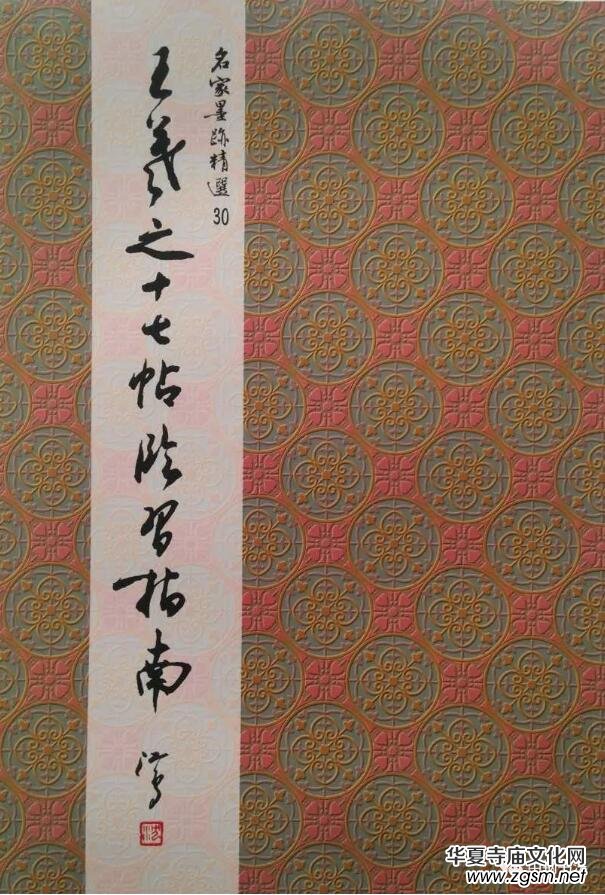 名家墨跡精選 30
王羲之十七帖临习指南
华夏寺庙文化网
www.zgsm.net